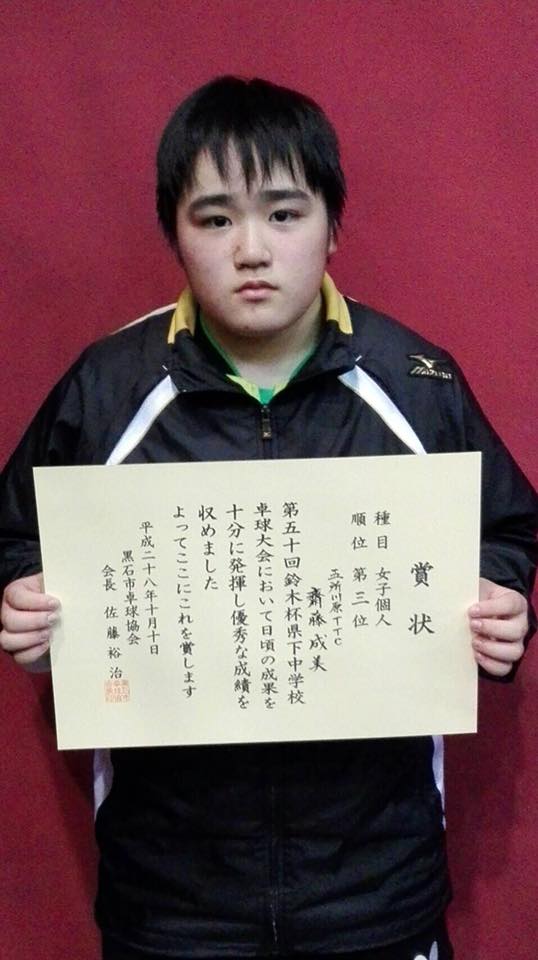 賞状
種目 女子個人
順位 第三位
五所川原TTC
齋藤成美
第五十回鈴木杯県下中学校
卓球大会において日頃の成果を
十分に発揮し優秀な成績を
収めました
よってここにこれを賞します
平成二十八年十月十日
黒石市卓球協会
会長 佐藤裕治
MIZUNO